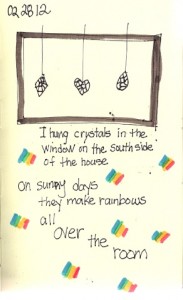 02 28 12
I hung crystals in the
window on the south side
of the house
on sunny days
they make rainbows
all
over
the
room